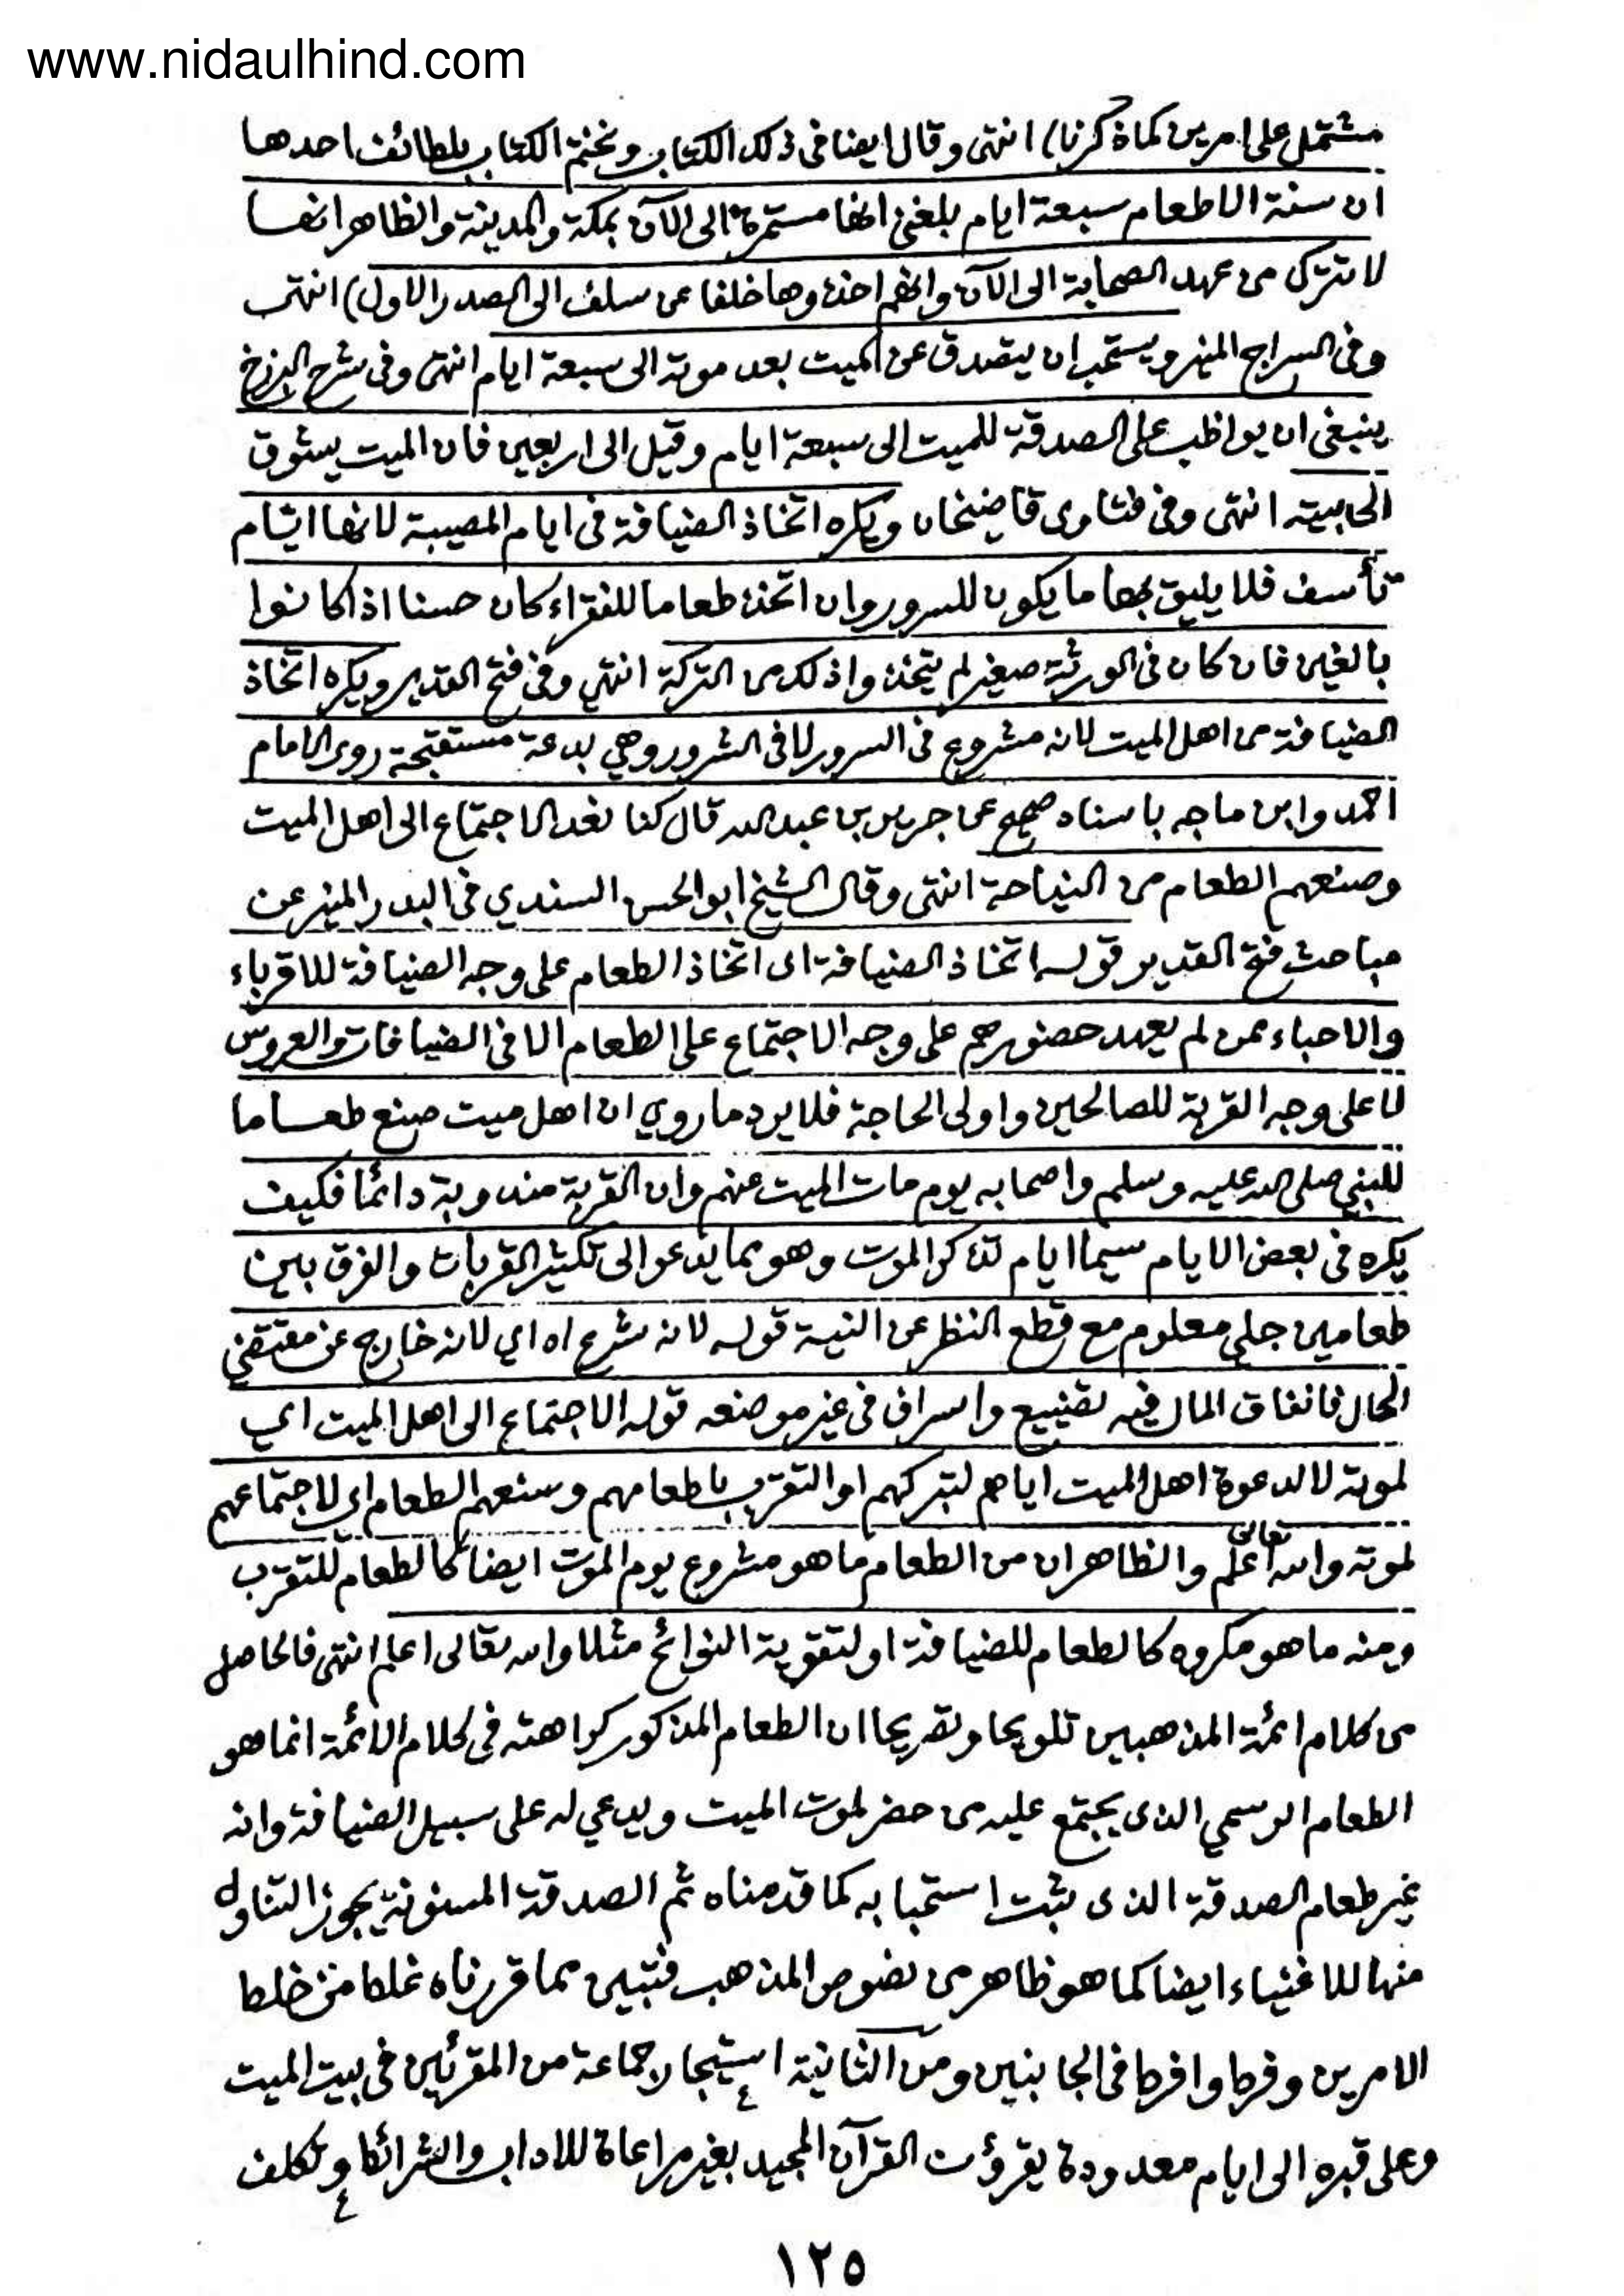 www.nidaulhind.com
مشتمل على امرين كما ذكرنا) انتهى وقال ايضا فى ذلك الكتاب ونختم الكتاب بلطائف احدها
ان سنة الاطعام سبعة ايام بلغنى انها مستمرة الى الآن بمكة والمدينة والظاهر انها
لا تترك من عهد الصحابة الى الآن وانهم اخذوها خلفا عن سلف الى الصدر الاول) انتهى
وفى السراج المنير ويستحب ان يتصدق عن الميت بعد موته الى سبعة ايام انتهى وفى شرح البرزخ
ينبغى ان يواظب على الصدقة للميت الى سبعة ايام وقيل الى اربعين فان الميت يشوق
الى بيته انتهى وفى فتاوى قاضيخان ويكره اتخاذ الضيافة فى ايام المصيبة لانها ايام
تأسف فلا يليق بها ما يكون للسرور وان اتخذ طعاما للفقراء كان حسنا اذا كانوا
بالغين فان كان فى الورثة صغير لم يتخذوا ذلك من التركة انتهى وفى فتح القدير ويكره اتخاذ
الضيافة من اهل الميت لانه مشروع فى السرور لا فى الشرور وهي بدعة مستقبحة روى الامام
احمد وابن ماجه باسناد صحيح عن جرير بن عبد الله قال كنا نعد الاجتماع الى اهل الميت
وصنعهم الطعام من النياحة انتهى وقال الشيخ ابو الحسن السندي فى البدر المنير عن
مباحث فتح القدير قوله اتخاذ الضيافة اى اتخاذ الطعام على وجه الضيافة للاقرباء
والاحباء ممن لم يعهد حضورهم على وجه الاجتماع على الطعام الا فى الضيافات والعروس
لا على وجه القربة للصالحين واولى الحاجة فلا يرد ما روي ان اهل ميت صنع طعاما
للنبي صلى الله عليه وسلم واصحابه يوم مات الميت عنهم وان القربة مندوبة دائما فكيف
يكره فى بعض الايام سيما ايام تذكر الموت وهو مما يدعو الى تكثير القربات والفرق بين
طعامين جلي معلوم مع قطع النظر عن النية قوله لانه شرع اه اي لانه خارج عن مقتضى
الحال فانفاق المال فيه تضييع واسراف فى غير موضعه قوله الاجتماع الى اهل الميت اي
لموته لا لدعوة اهل الميت اياهم لتبركهم او التقرب باطعامهم وصنعهم الطعام اي لاجتماعهم
لموته والله تعالى اعلم والظاهر ان من الطعام ما هو مشروع يوم الموت ايضا كالطعام للتقرب
ومنه ما هو مكروه كالطعام للضيافة او لتقوية النوائح مثلا والله تعالى اعلم انتهى فالحاصل
من كلام ائمة المذهبين تلويحا وتصريحا ان الطعام المذكور كراهته فى كلام الائمة انما هو
الطعام الرسمي الذى يجتمع عليه من حضر لموت الميت ويدعي له على سبيل الضيافة وانه
غير طعام الصدقة الذى ثبت استحبابه كما قدمناه ثم الصدقة المسنونة يجوز التناول
منها للاغنياء ايضا كما هو ظاهر من نصوص المذهب فتبين مما قررناه غلط من خلط
الامرين وفرط وافرط فى الجانبين ومن الثانية استيجار جماعة من المقرئين فى بيت الميت
وعلى قبره الى ايام معدودة يقرؤن القرآن المجيد بغير مراعاة للاداب والشرائط وتكلف
١٢٥